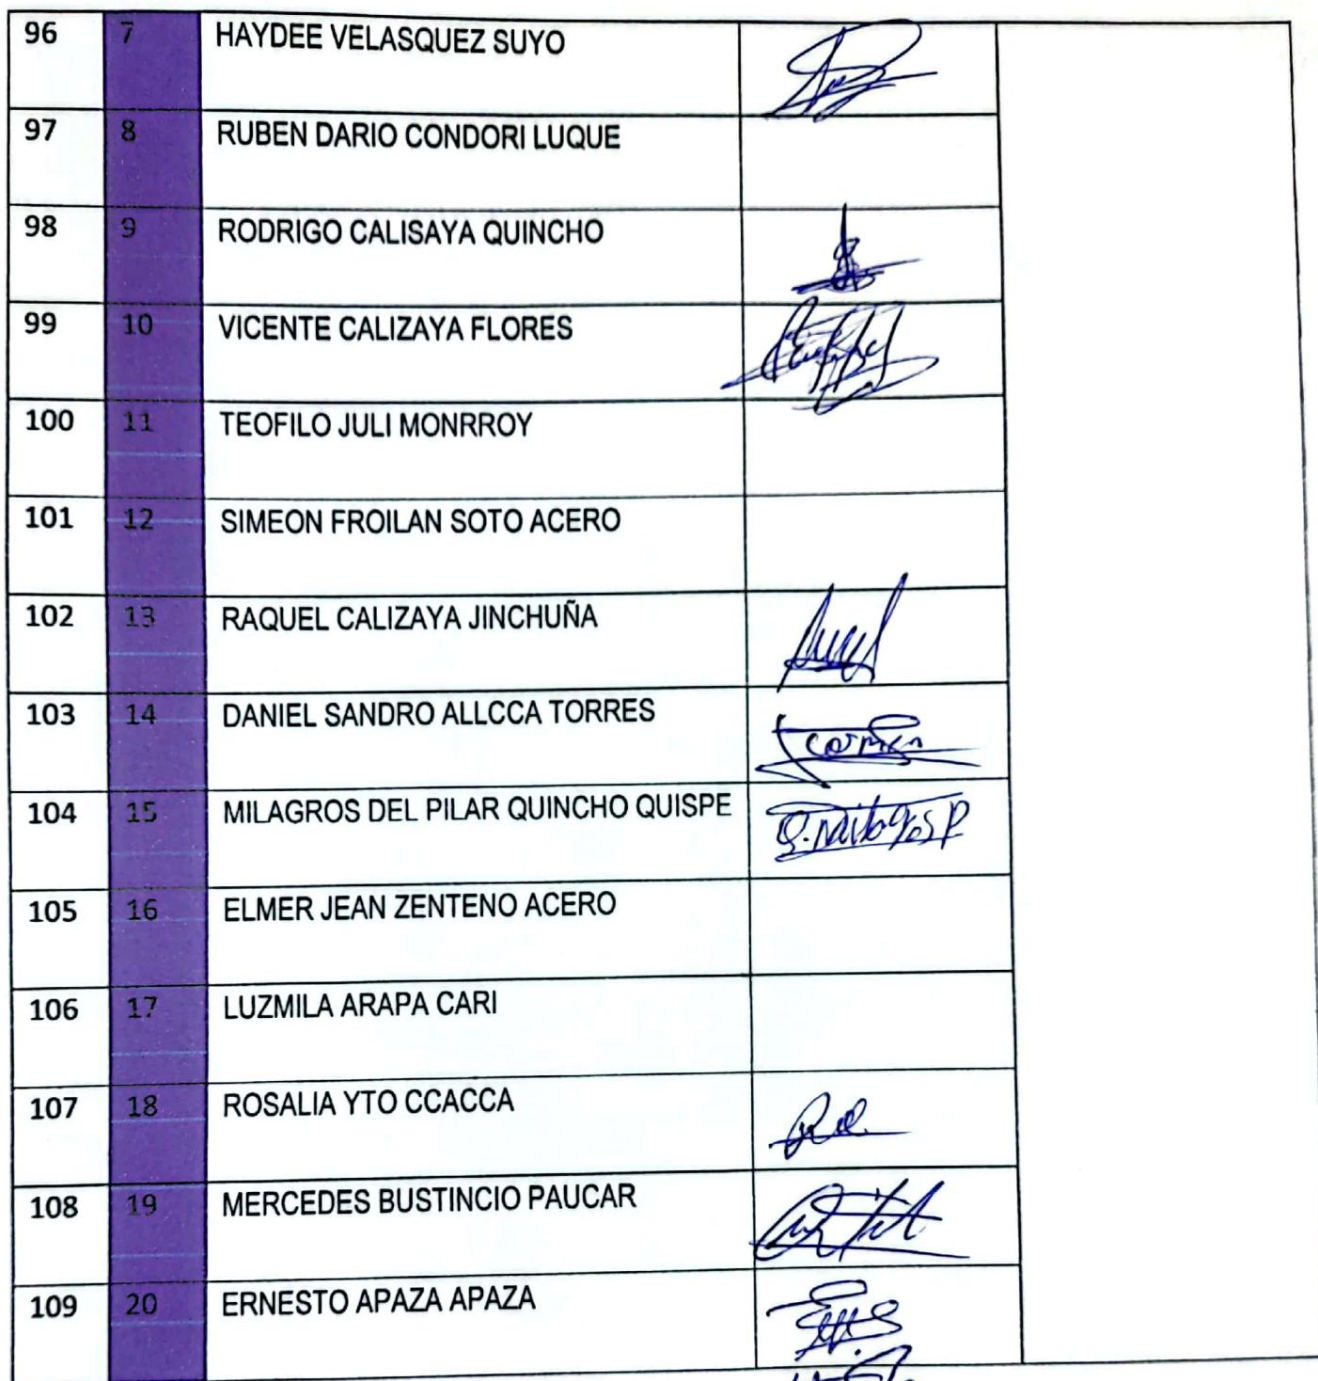 96 7 HAYDEE VELASQUEZ SUYO
97 8 RUBEN DARIO CONDORI LUQUE
98 9 RODRIGO CALISAYA QUINCHO
99 10 VICENTE CALIZAYA FLORES
100 11 TEOFILO JULI MONRROY
101 12 SIMEON FROILAN SOTO ACERO
102 13 RAQUEL CALIZAYA JINCHUÑA
103 14 DANIEL SANDRO ALLCCA TORRES
104 15 MILAGROS DEL PILAR QUINCHO QUISPE
105 16 ELMER JEAN ZENTENO ACERO
106 17 LUZMILA ARAPA CARI
107 18 ROSALIA YTO CCACCA
108 19 MERCEDES BUSTINCIO PAUCAR
109 20 ERNESTO APAZA APAZA